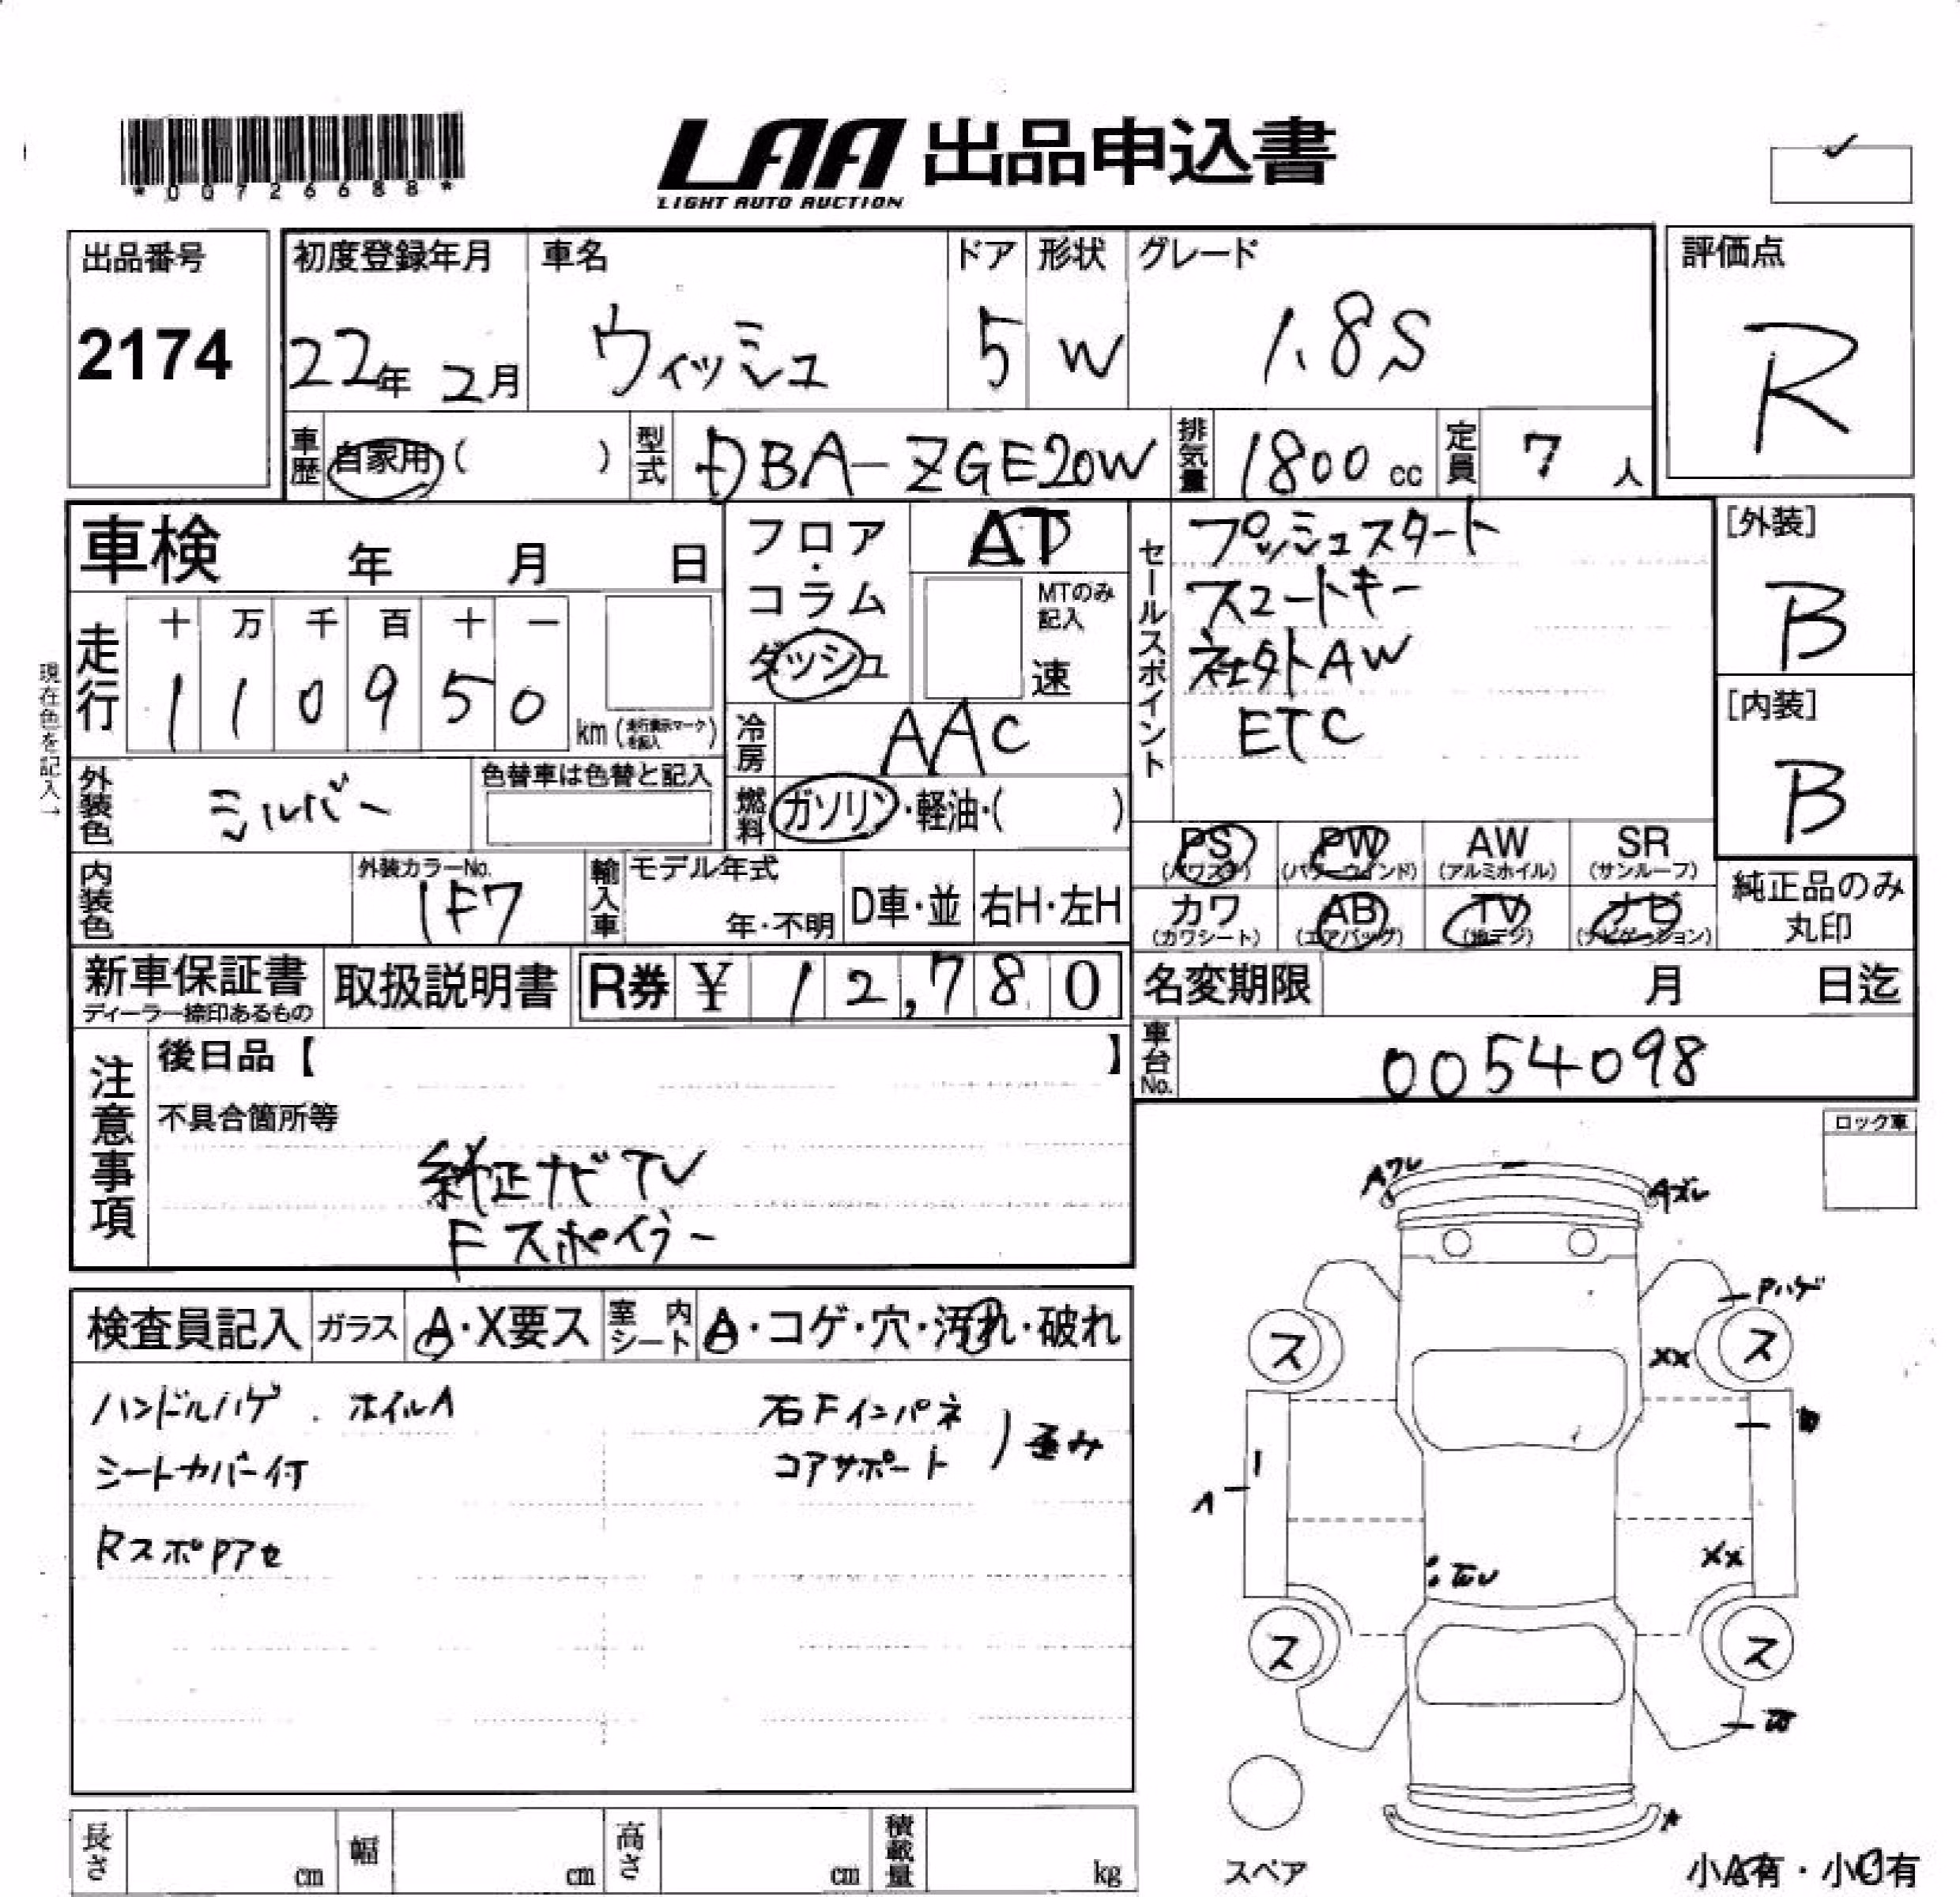 *00726688*
LAA 出品申込書
LIGHT AUTO AUCTION
出品番号
2174
初度登録年月 車名 ドア 形状 グレード
22年 2月 ウィッシュ 5 W 1.8S
評価点
R
車歴 自家用 ( ) 型式 DBA-ZGE20W 排気量 1800 cc 定員 7 人
車検 年 月 日
フロア・コラム ダッシュ
AT
MTのみ記入
速
走行 十 万 千 百 十 一
1 1 0 9 5 0
km (走行表示マークを記入)
現在色を記入→
外装色 シルバー
色替車は色替と記入
冷房 AAC
燃料 ガソリン・軽油・( )
セールスポイント
プッシュスタート
スマートキー
社外AW
ETC
[外装]
B
[内装]
B
PS (パワステ) PW (パワーウインド) AW (アルミホイル) SR (サンルーフ)
カワ (カワシート) AB (エアバッグ) TV (地デジ) ナビ (ナビゲーション)
純正品のみ丸印
内装色
外装カラーNo.
1F7
輸入車 モデル年式
年・不明 D車・並 右H・左H
新車保証書 取扱説明書 R券 ¥ 12,780
ディーラー捺印あるもの
名変期限 月 日迄
車台No. 0054098
注意事項
後日品【 】
不具合箇所等
純正ナビ TV
Fスポイラー
ロック車
検査員記入 ガラス A・X要ス 室内シート A・コゲ・穴・汚れ・破れ
ハンドルハゲ . ホイルA
シートカバー付
RスポPアセ
右Fインパネ
コアサポート ) 歪み
Aズレ
Pハゲ
ス ス
XX
A
XX
ス ス
A
スペア
小A有・小U有
長さ cm 幅 cm 高さ cm 積載量 kg